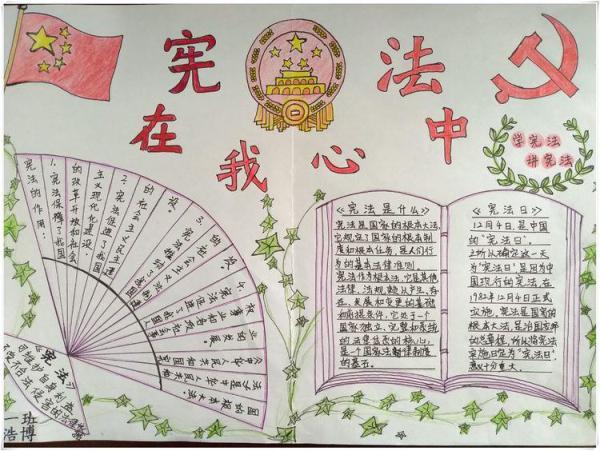 宪法
在我心中
学宪法
讲宪法
宪法的作用:
1.宪法保障了我国
的改革开放和社会
主义现代化建设;
2.宪法促进了我国
的社会主义民主建
设;
3.宪法推动了
的社会主义法
制建设。
4.宪法促进了我国人
权事业和各项社会事
业的发展。
《宪法》
《宪法是什么》
宪法是国家的根本大法,
它规定了国家的根本制
度和根本任务,是人们行
为的基本法律准则。
宪法作为根本法,它是其他
法律、法规赖以产生、存
在、发展和变更的基础
和前提条件,它处于一个
国家独立、完整和系统
的法律体系的核心,
是一个国家法制体制度
的基石。
《宪法日》
12月4日,是中国
的“宪法日”。
之所以确定这一天
为“宪法日”,是因为中
国现行的宪法,在
1982年12月4日正式
实施。宪法是国家的
根本大法,是治国安邦
的总章程,所以将宪法
实施日定为“宪法日”,
意义十分重大。
一班
浩博